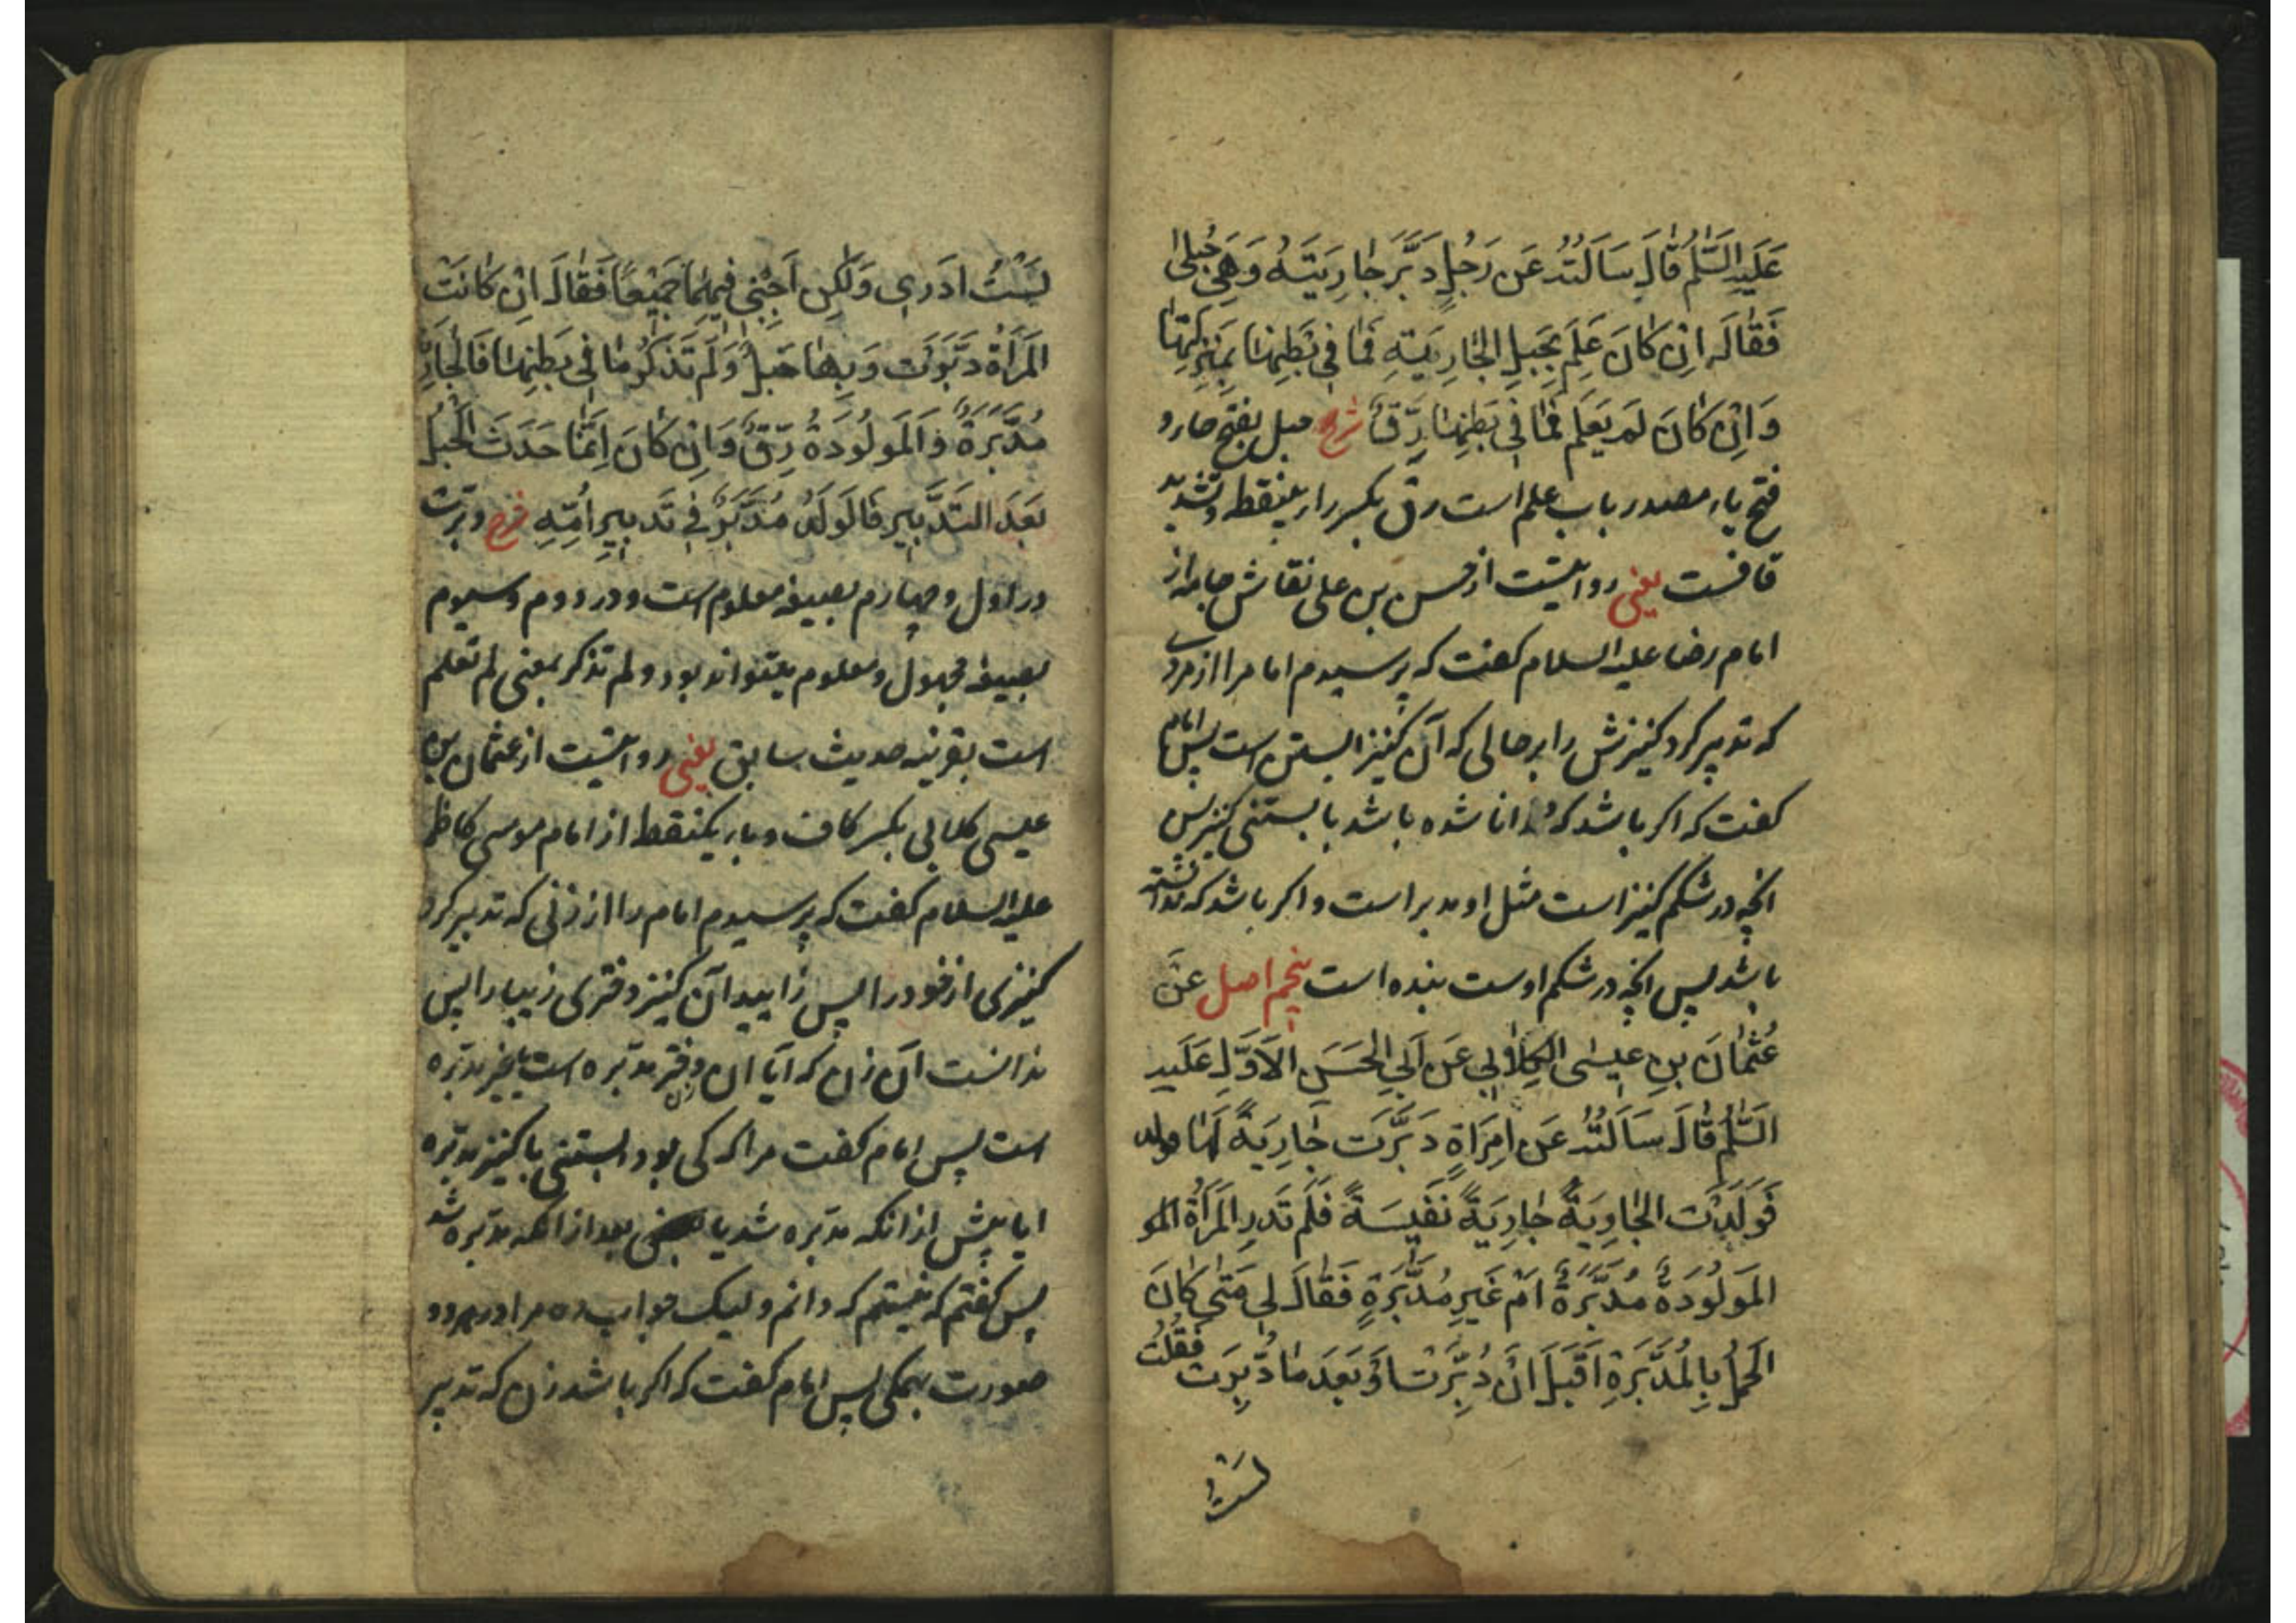 عَلَیهِ السَّلٰمُ قَالَ سَاَلتُهُ عَن رَجُلٍ دَبَّرَ جٰارِیَتَهُ وَهِیَ حُبلیٰ
فَقٰالَ اِن کٰانَ عَلِمَ بِحَبلِ الجٰارِیَةِ فَمٰا فِی بَطنِهٰا بِمَنزِلَتِهٰا
وَاِن کٰانَ لَم یَعلَم فَمٰا فِی بَطنِهٰا رِقٌّ شرح حبل بفتح حاء و
فتح باء مصدر باب علم است رق بکسر راء بینقطه و تشدید
قافست یعنی روایتست از حسن بن علی نقاش جامه از
امام رضا علیه السلام کفت که پرسیدم امام را از مردی
که تدبیر کرد کنیزش را بر حالی که آن کنیز ابستن است پس امام
کفت که اکر باشد که دانا شده باشد بابستنی کنیز پس
انچه در شکم کنیز است مثل او مدبر است و اکر باشد که ندانسته
باشد پس انچه در شکم اوست بنده است پنجم اصل عَن
عُثمٰانَ بنِ عِیسٰی الکِلاٰبِی عَن اَبِی الحَسَنِ الاَوَّلِ عَلَیهِ
السَّلٰمُ قٰالَ سَاَلتُهُ عَن اِمرَاَةٍ دَبَّرَت جٰارِیَةً لَهٰا
فَوَلَدَت الجٰارِیَةُ جٰارِیَةً نَفِیسَةً فَلَم تَدرِ المَرأَةُ المو
المَولُودَةُ مُدَبَّرَةٌ اَم غَیرِ مُدَبَّرَةٍ فَقٰالَ لِی مَتٰی کٰانَ
الحَملُ بِالمُدَبَّرَةِ اَقَبلَ اَن دُبِّرَت اَو بَعدَ مٰا دُبِّرَت فَقُلتُ
لَستُ
لَستُ ادَرِی وَلٰکِن اَجِبنِی فِیهِمٰا جَمِیعًا فَقٰالَ اِن کٰانَت
المَرأَة دَبَّرَت وَبِهٰا حَبلٌ وَلَم تَذکُر مٰا فِی بَطنِهٰا فَالجٰارِیَةُ
مُدَبَّرَةٌ وَالمَولُودَةُ رِقٌّ وَاِن کٰانَ اِنَّمٰا حَدَثَ الحَبلُ
بَعدَ التَدبِیرِ فَالوَلَدُ مُدَبَّرٌ فِی تَدبِیرِ اُمِّهِ شرح دبرت
در اول و چهارم بصیغه معلوم است و در دووم و سیوم
بصیغه مجهول و معلوم میتواند بود و لم تذکر بمعنی لم تعلم
است بقرینه حدیث سابق یعنی روایتست از عثمان بن
عیسی کلابی بکسر کاف و باء یکنقطه از امام موسی کاظم
علیه السلام کفت که پرسیدم امام را از زنی که تدبیر کرد
کنیزی از خود را پس زایید آن کنیز دختری زیبا را پس
ندانست آن زن که آیا ان دختر مدبّره است یا غیر مدبّره
است پس امام کفت مرا که کی بود ابستنی با کنیز مدبّره
ایا پیش از انکه مدبّره شد یا بعد از انکه مدبّره شد
پس کفتم که نیستم که دانم و لیک جواب ده مرا در هر دو
صورت بهمکی پس امام کفت که اکر باشد زن که تدبیر